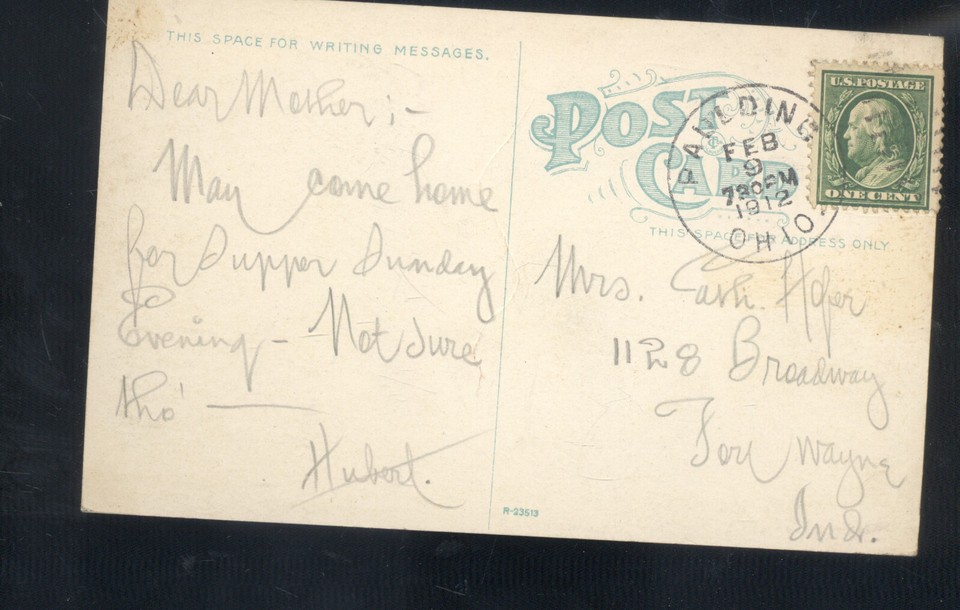 THIS SPACE FOR WRITING MESSAGES.
Dear Mother;-
May come home
for Supper Sunday
Evening - Not Sure
tho' —
Hubert.
POST
CARD
PAULDING
FEB
9
730PM
1912
OHIO
U.S. POSTAGE
ONE CENT
THIS SPACE FOR ADDRESS ONLY.
Mrs.
1128 Broadway
Fort Wayne
Ind.
R-23513